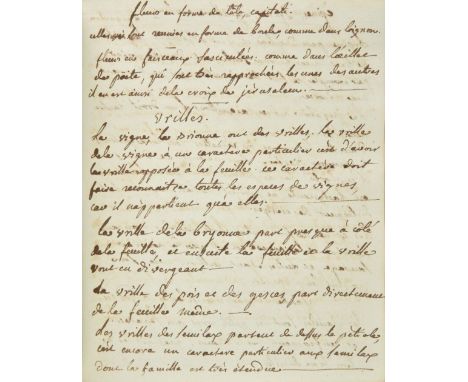 fleurs en forme de tête, capitati
elles qui sont reunies en forme de boule, comme dans loignon.
fleurs en faisceaux fasciculées. comme dans loeillet
de poëte, qui sont tres rapprochées les unes des autres
il en est ainsi de la croix de jerusalem.
vrilles.
la vigne la brionne ont des vrilles, les vrille
de la vignes a un caractere particulier c'est d'avoir
la vrille opposée à la feuille. ce caractere doit
faire reconnaitre toutes les especes de vignes
car il n'appartient qua elles.
la vrille de la bryonne part presque à côté
de la feuille et ensuite la feuille et la vrille
vont en divergeant
la vrille des pois et des gesces part directement
de la feuilles même.
les vrilles des smilax partent de dessus le petiole
c'est encore un caractere particulier aux smilax
dont la famille est tres etendue